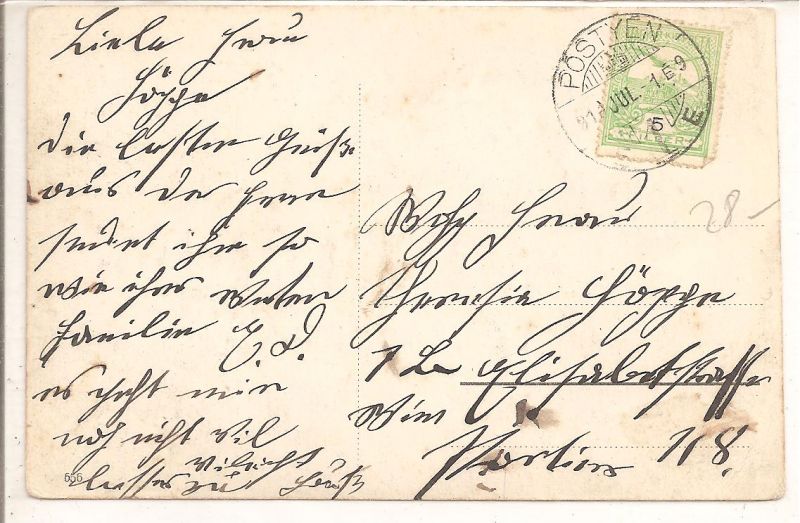 Liebe Frau
Höppe
die besten Grüße
aus der Ferne
sendet ihr so
wie ihrer werten
Familie E. D.
es geht mir
noch nicht vil
besser vileicht zu Hauß
656
PÖSTYÉN
JUL.-1.E9
E
5
FILLÉR
28-
Frau
Theresia Höppe
Elisabetstrasse
Wien
118